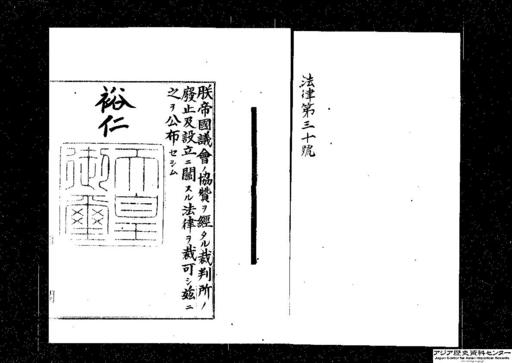 法律第三十號
朕帝國議會ノ協贊ヲ經タル裁判所ノ
廢止及設立ニ關スル法律ヲ裁可シ茲ニ
之ヲ公布セシム
裕仁
天皇
御璽
アジア歴史資料センター
Japan Center for Asian Historical Records